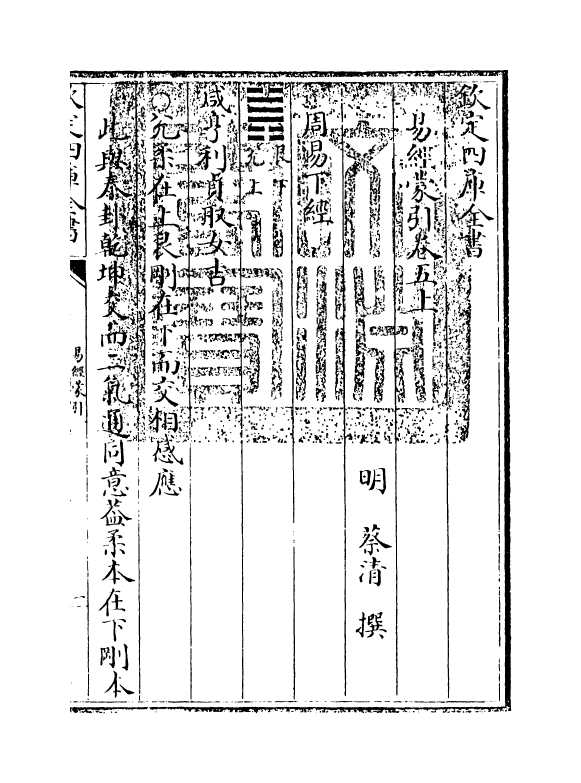 欽定四庫全書
易經蒙引卷五上
明 蔡清 撰
周易下經
䷞艮下兌上
咸亨利貞取女吉
○兌柔在上艮剛在下而交相感應
此與泰卦乾坤交而二氣通同意蓋柔本在下剛本
欽定四庫全書
易經蒙引